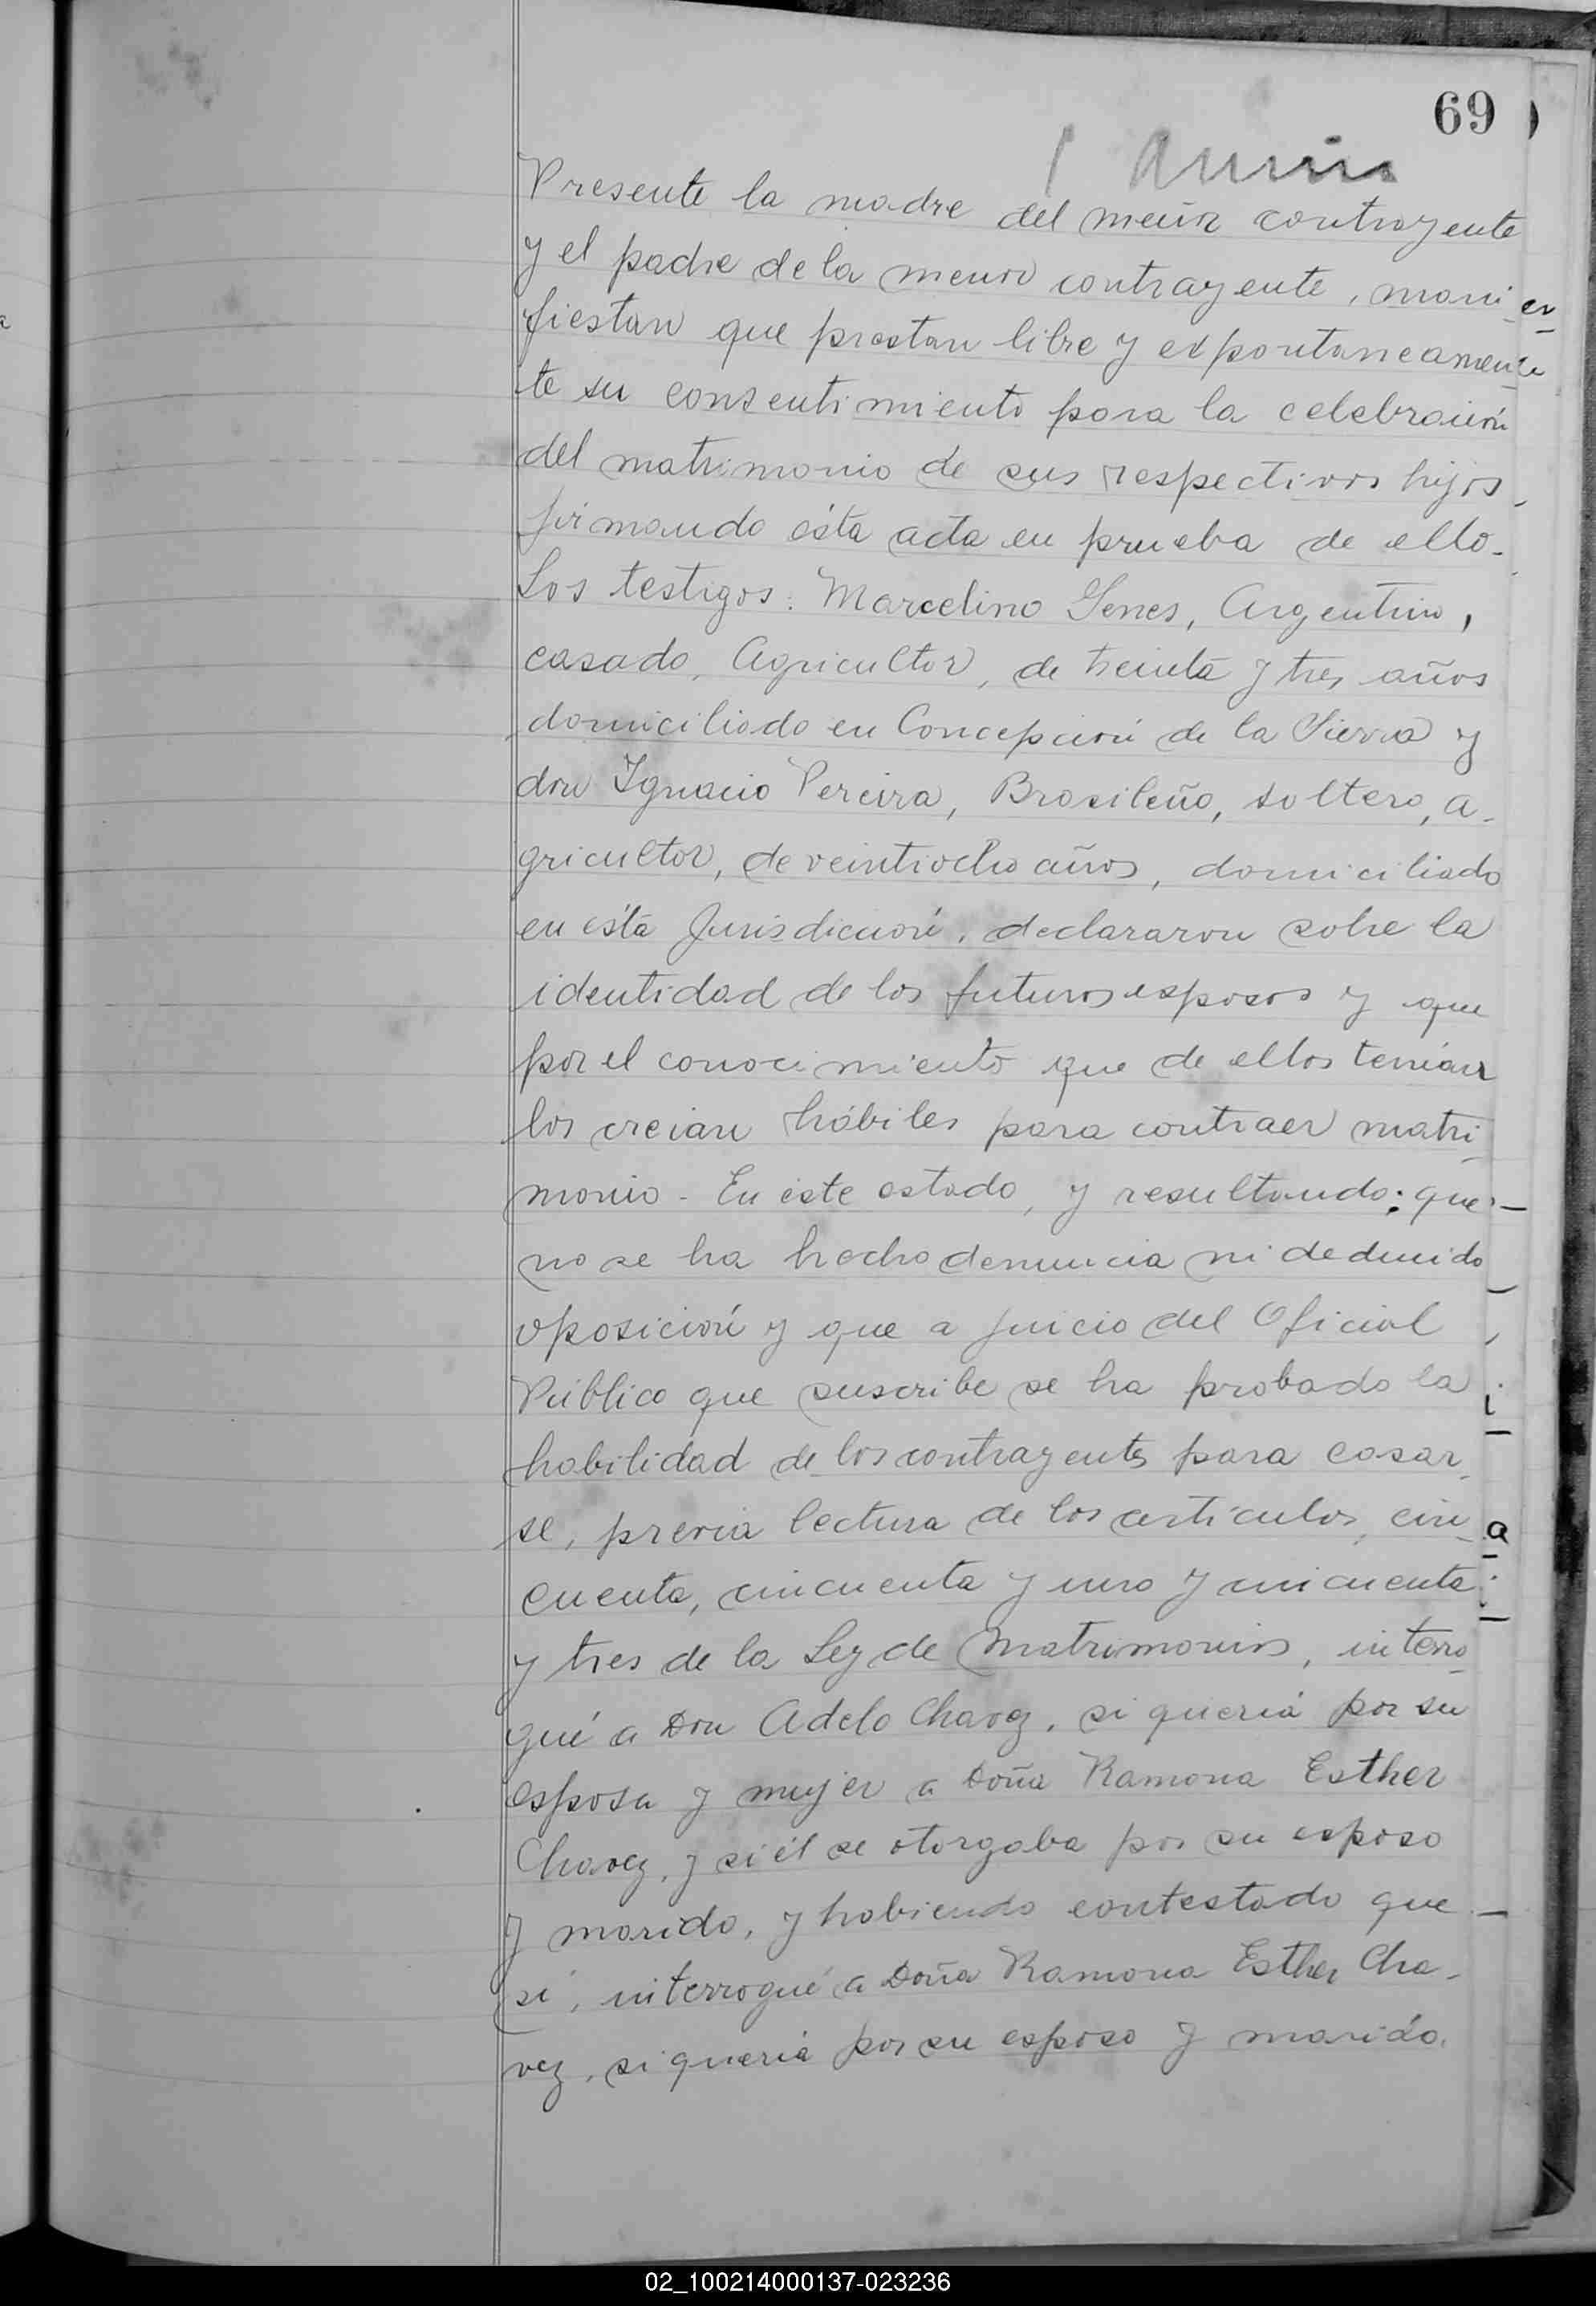 69
Presente la madre del menor contrayente
y el padre de la menor contrayente, mani-
fiestan que prestan libre y expontaneamen-
te su consentimiento para la celebración
del matrimonio de sus respectivos hijos,
firmando ésta acta en prueba de ello.
Los testigos: Marcelino Genes, Argentino,
casado, Agricultor, de treinta y tres años
domiciliado en Concepción de la Sierra y
don Ignacio Pereira, Brasileño, soltero, a-
gricultor, de veintiocho años, domiciliado
en ésta Jurisdicción, declararon sobre la
identidad de los futuros esposos y que
por el conocimiento que de ellos tenían
los creian hábiles para contraer matri-
monio - En este estado, y resultando: que
no se ha hecho denuncia ni deducido
oposición y que a juicio del Oficial
Público que suscribe se ha probado la
habilidad de los contrayentes para casar-
se, previa lectura de los artículos, cin-
cuenta, cincuenta y uno y cincuenta
y tres de la Ley de Matrimonios, interro-
gué a Don Adelo Chavez, si quería por su
esposa y mujer a Doña Ramona Esther
Chavez, y si él se otorgaba por su esposo
y marido, y habiendo contestado que
sí, interrogué a Doña Ramona Esther Cha-
vez, si quería por su esposo y marido.
02_100214000137-023236